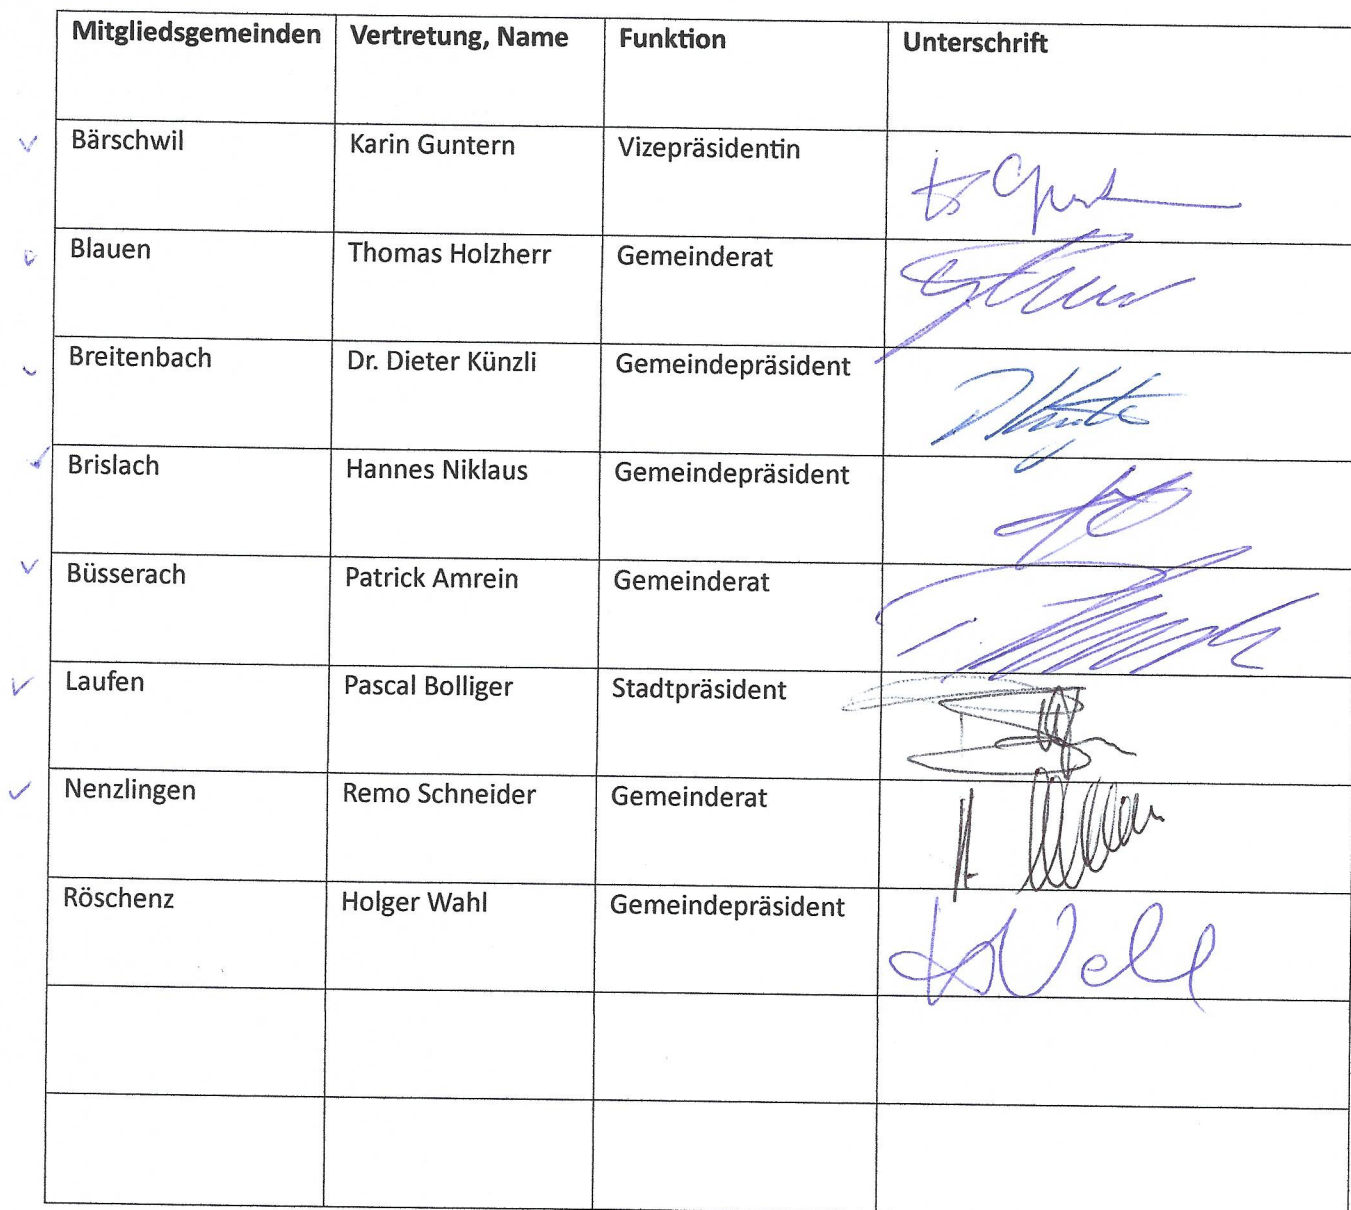 Mitgliedsgemeinden Vertretung, Name Funktion Unterschrift
Bärschwil Karin Guntern Vizepräsidentin
Blauen Thomas Holzherr Gemeinderat
Breitenbach Dr. Dieter Künzli Gemeindepräsident
Brislach Hannes Niklaus Gemeindepräsident
Büsserach Patrick Amrein Gemeinderat
Laufen Pascal Bolliger Stadtpräsident
Nenzlingen Remo Schneider Gemeinderat
Röschenz Holger Wahl Gemeindepräsident